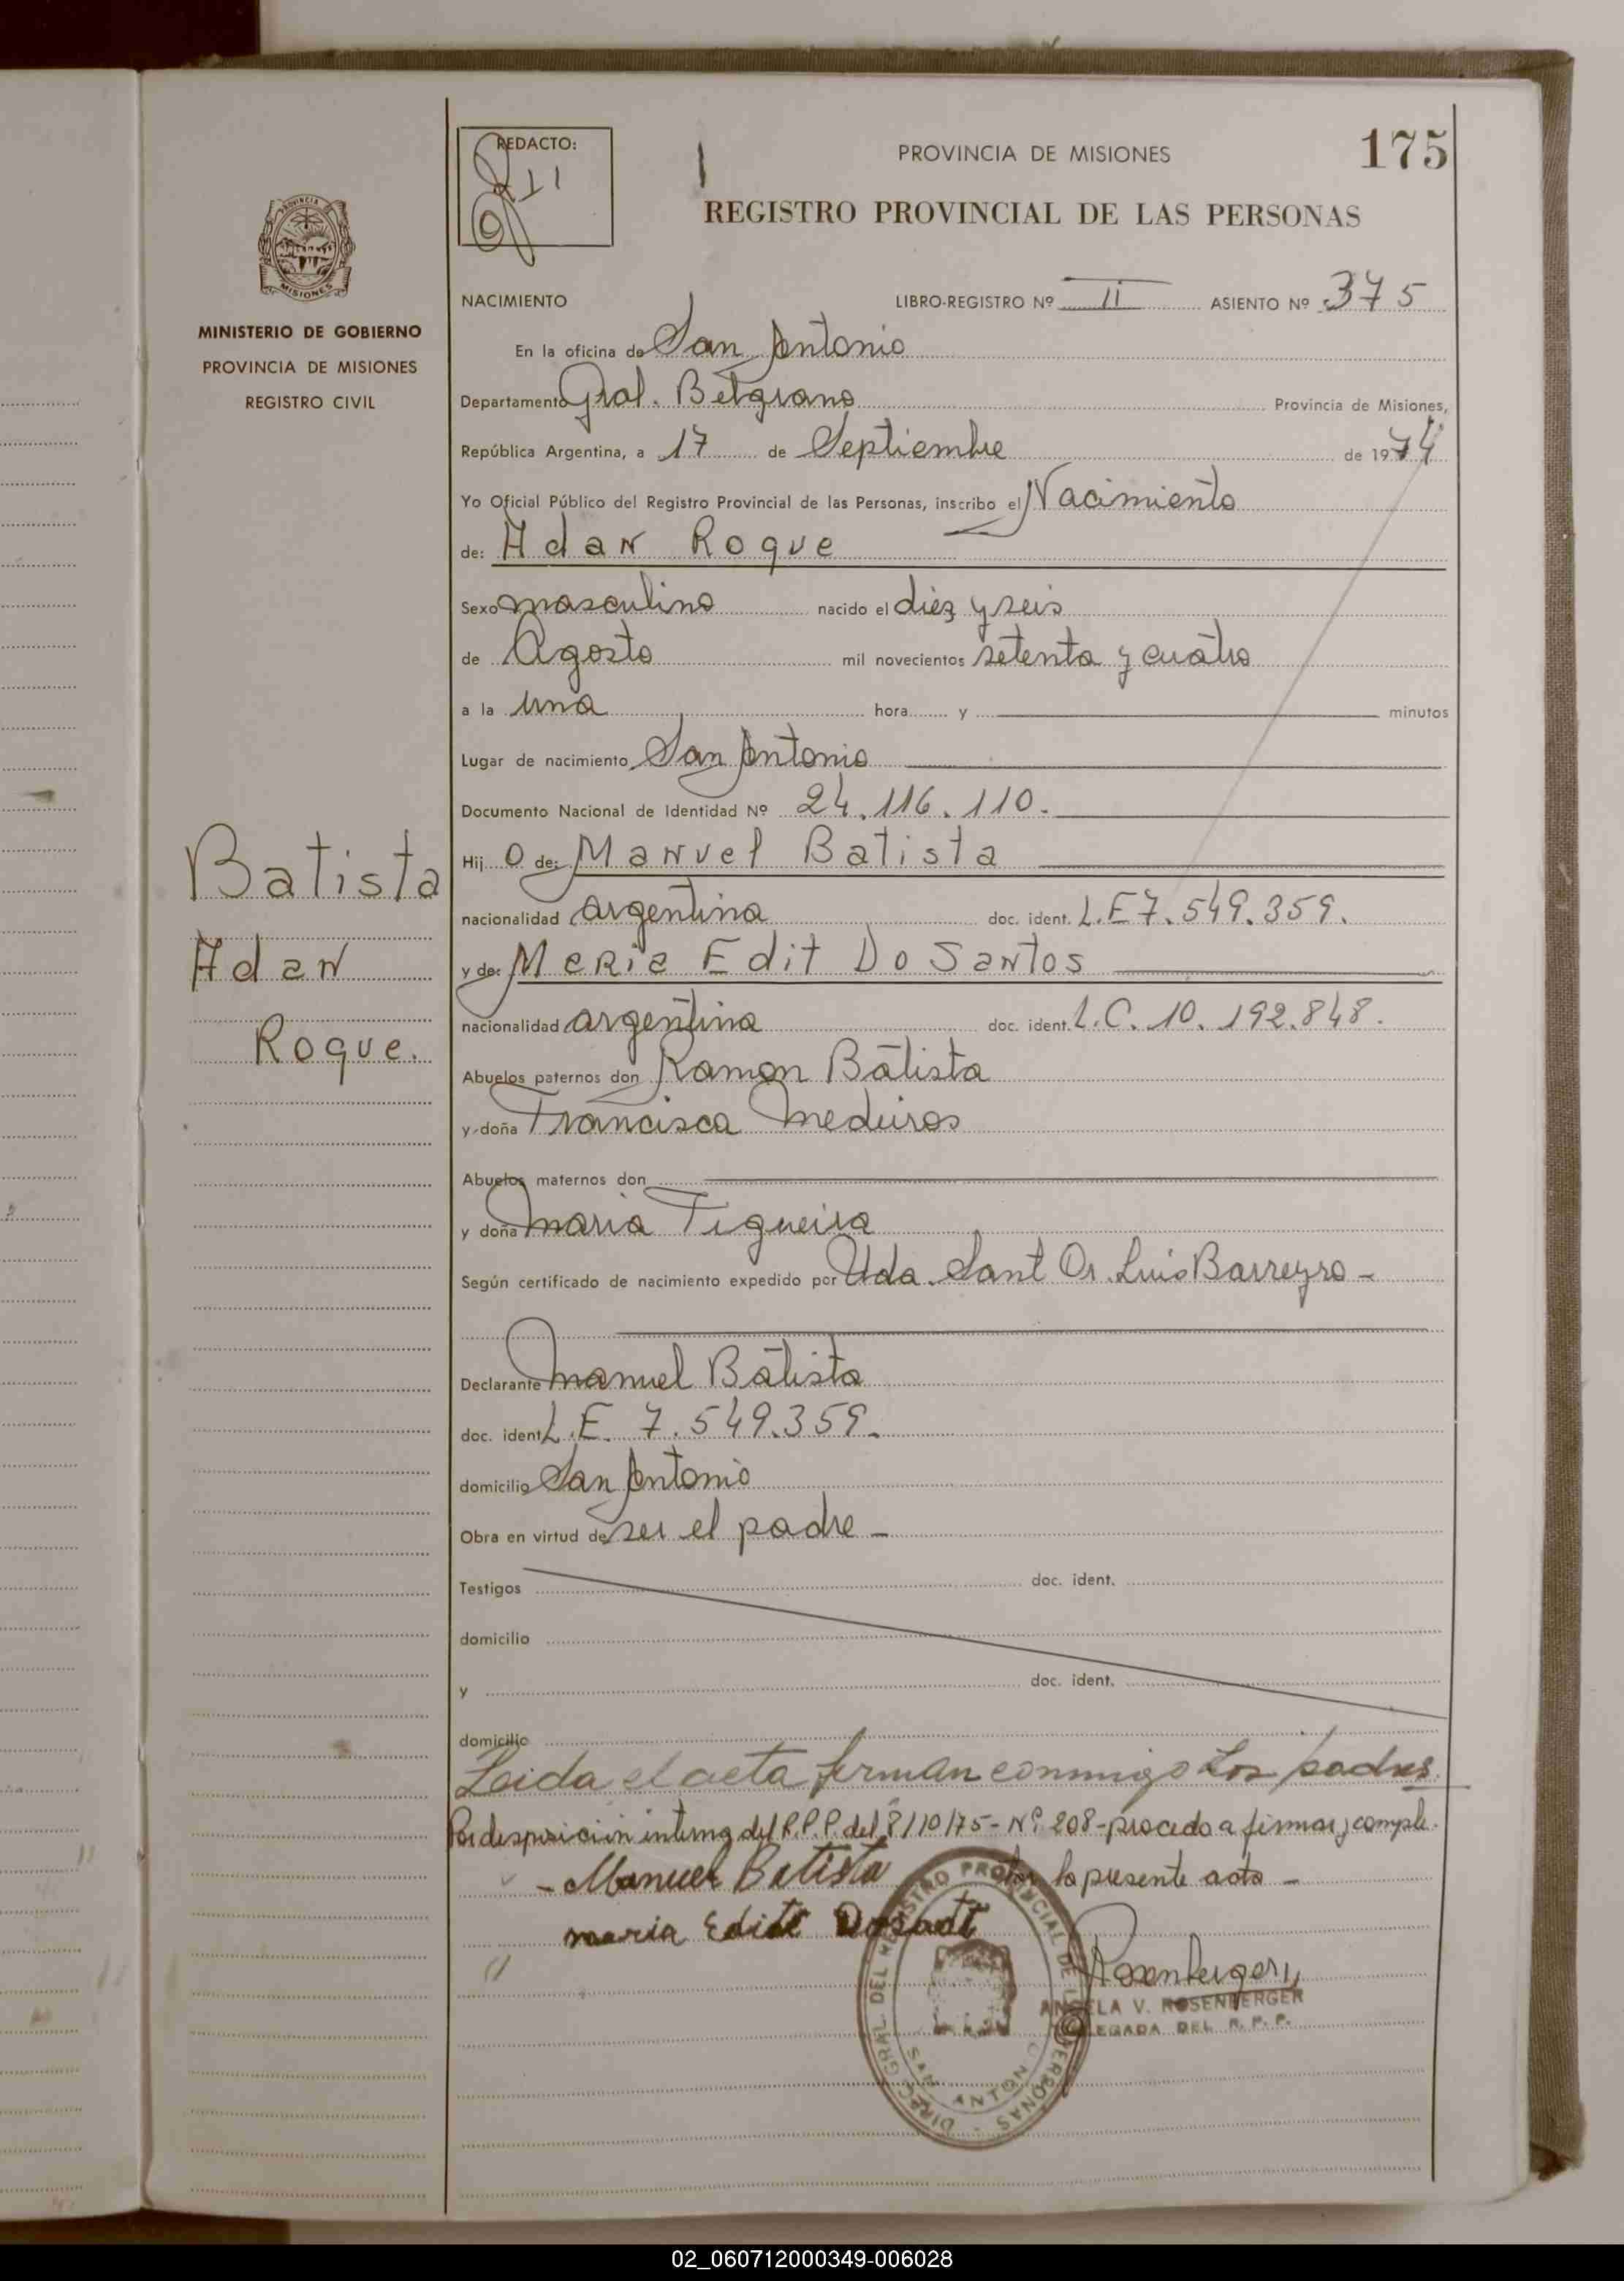 REDACTO:
PROVINCIA DE MISIONES
175
REGISTRO PROVINCIAL DE LAS PERSONAS
PROVINCIA
MISIONES
MINISTERIO DE GOBIERNO
PROVINCIA DE MISIONES
REGISTRO CIVIL
NACIMIENTO LIBRO-REGISTRO Nº II ASIENTO Nº 375
En la oficina de San Antonio
Departamento Gral. Belgrano Provincia de Misiones,
República Argentina, a 17 de Septiembre de 1974
Yo Oficial Público del Registro Provincial de las Personas, inscribo el Nacimiento
de: Adan Roque
Sexo masculino nacido el diez y seis
de Agosto mil novecientos setenta y cuatro
a la una hora y minutos
Lugar de nacimiento San Antonio
Documento Nacional de Identidad Nº 24.116.110.
Batista
Adan
Roque.
Hijo de: Manuel Batista
nacionalidad argentina doc. ident. L.E 7.549.359.
y de: Meria Edit Do Santos
nacionalidad argentina doc. ident. L.C. 10.192.848.
Abuelos paternos don Ramon Batista
y doña Francisca Medeiros
Abuelos maternos don
y doña Maria Figueira
Según certificado de nacimiento expedido por Uda. Sant Dr. Luis Barreyro -
Declarante Manuel Batista
doc. ident L.E. 7.549.359.
domicilio San Antonio
Obra en virtud de ser el padre -
Testigos doc. ident.
domicilio
y doc. ident.
domicilio
Leida el acta firman conmigo los padres.
Por desposición interna del R.P.P. del 8/10/75 - Nº 208 - procedo a firmar y comple-
tar la presente acta -
- Manuel Batista
maria Edite
Rosenberger
ANGELA V. ROSENBERGER
DELEGADA DEL R. P. P.
DIREC. GRAL. DEL REGISTRO PROVINCIAL DE LAS PERSONAS
SAN ANTONIO
02_060712000349-006028